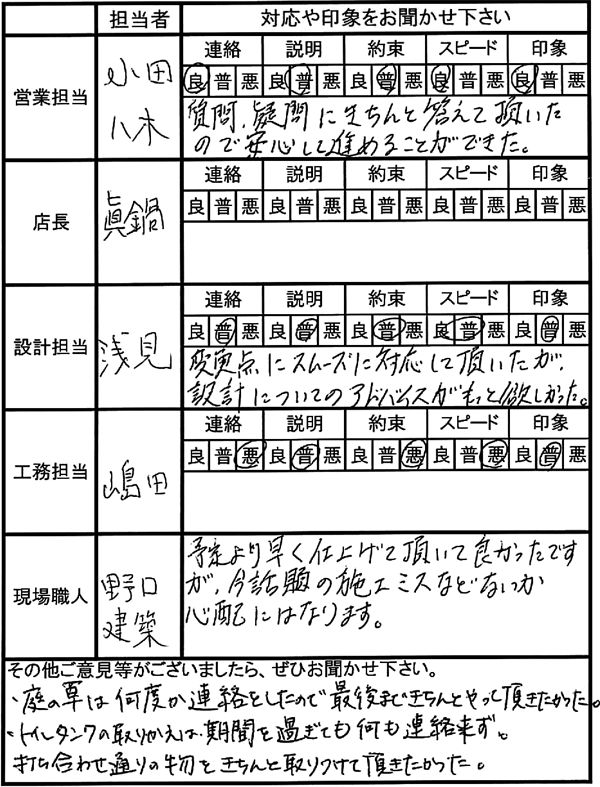 担当者 対応や印象をお聞かせ下さい
営業担当 小田 八木
連絡 説明 約束 スピード 印象
良 普 悪 良 普 悪 良 普 悪 良 普 悪 良 普 悪
質問、疑問にきちんと答えて頂いた
ので安心して進めることができた。
店長 眞鍋
連絡 説明 約束 スピード 印象
良 普 悪 良 普 悪 良 普 悪 良 普 悪 良 普 悪
設計担当 浅見
連絡 説明 約束 スピード 印象
良 普 悪 良 普 悪 良 普 悪 良 普 悪 良 普 悪
変更点にスムーズに対応して頂いたが、
設計についてのアドバイスがもっと欲しかった。
工務担当 嶋田
連絡 説明 約束 スピード 印象
良 普 悪 良 普 悪 良 普 悪 良 普 悪 良 普 悪
現場職人 野口 建築
予定より早く仕上げて頂いて良かったです
が、今話題の施工ミスなどないか
心配にはなります。
その他ご意見等がございましたら、ぜひお聞かせ下さい。
・庭の草は何度か連絡をしたので最後まできちんとやって頂きたかった。
・トイレタンクの取りかえは期間を過ぎても何も連絡来ず。
打ち合わせ通りの物をきちんと取りつけて頂きたかった。